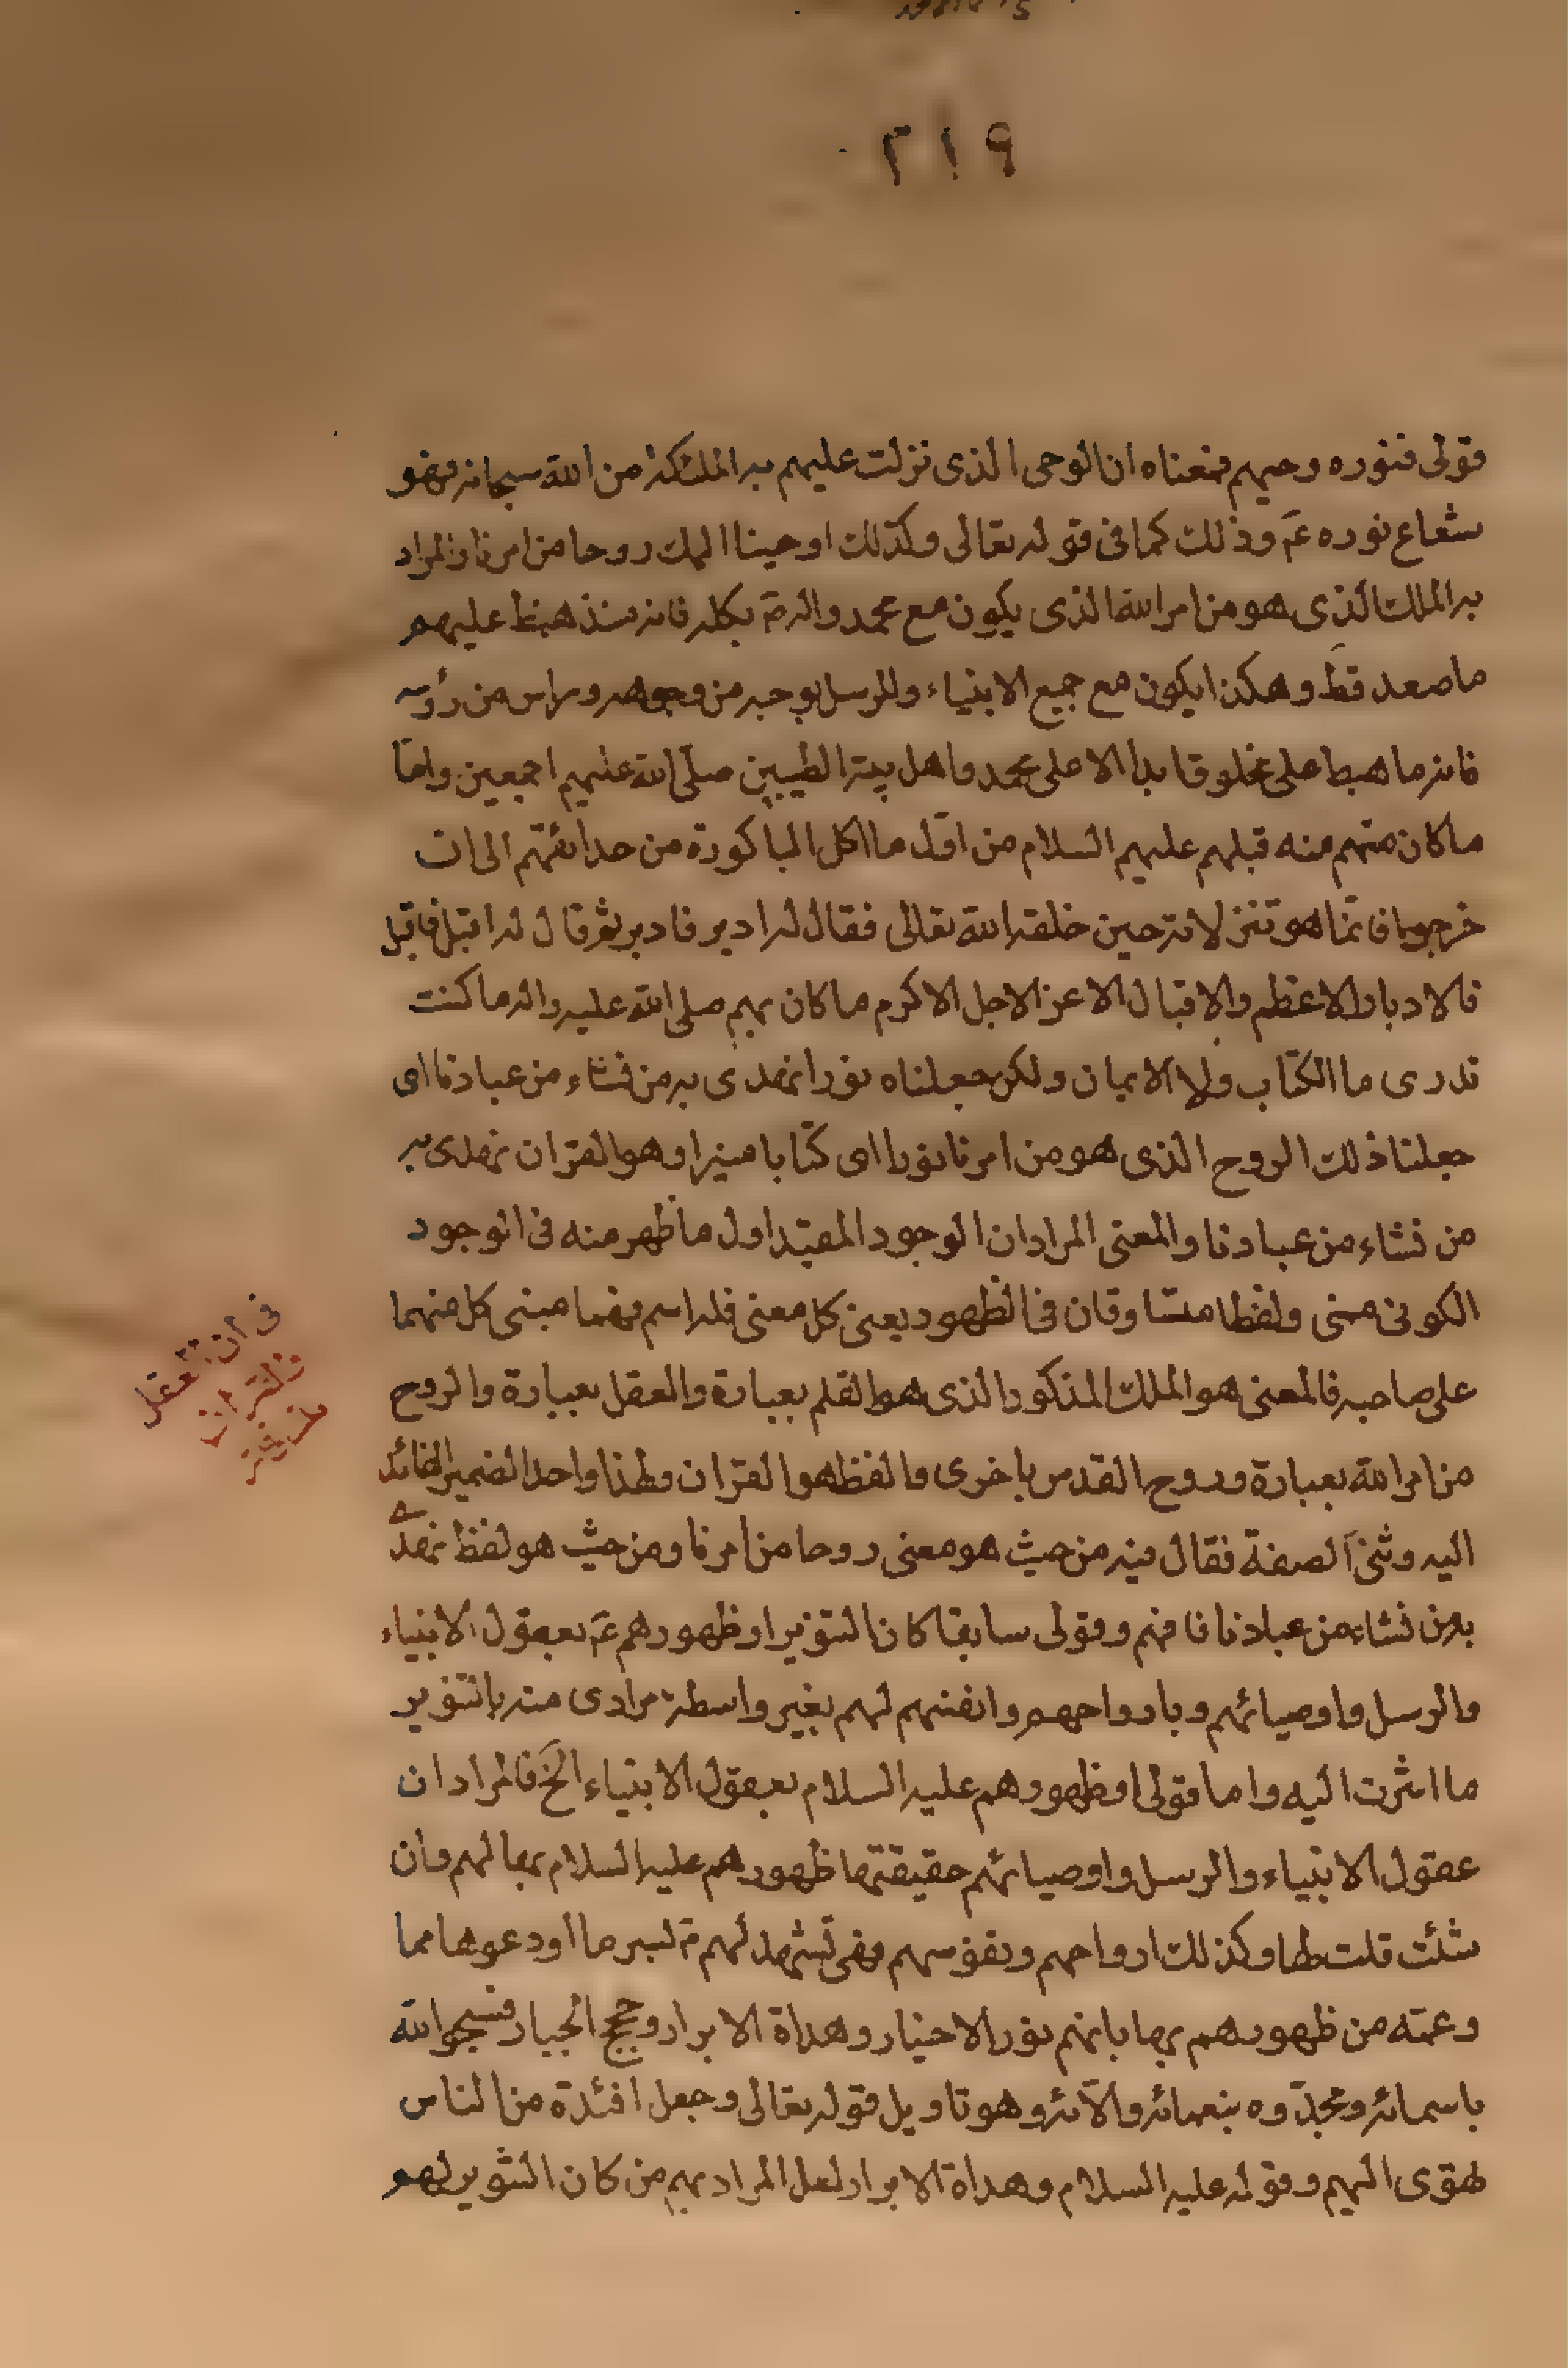 ٣١٩
قولى فنوره وحيهم فمعناه ان الوحى الذى نزلت عليهم به الملئكة من الله سبحانه فهو
شعاع نوره عم وذلك كما فى قوله تعالى وكذلك اوحينا اليك روحا من امرنا والمراد
به الملك الذى هو من امر الله الذى يكون مع محمد واله صم بكله فانه منذ هبط عليهم
ما صعد قط وهكذا يكون مع جميع الانبياء والرسل بوجه من وجوهه وراس من رؤسه
فانه ما هبط على مخلوق ابدا الا على محمد واهل بيته الطيبين صلى الله عليهم اجمعين واما
ما كان منهم منه قبلهم عليهم السلام من اول ما اكل الباكورة من حدائقهم الى ان
خرجوا فانما هو تنزلاته حين خلقه الله تعالى فقال له ادبر فادبر ثم قال له اقبل فاقبل
فالادبار الاعظم والاقبال الاعز الاجل الاكرم ما كان بهم صلى الله عليه واله ما كنت
تدرى ما الكتاب ولا الايمان ولكن جعلناه نورا نهدى به من نشاء من عبادنا اى
جعلنا ذلك الروح الذى هو من امرنا نورا اى كتابا منيرا وهو القران نهدى به
من نشاء من عبادنا والمعنى المراد ان الوجود المقيد اول ما ظهر منه فى الوجود
الكونى معنى ولفظا متساوقان فى الظهور يعنى كل معنى فله اسم فهما مبنى كل منهما
على صاحبه فالمعنى هو الملك المذكور الذى هو القلم بعبارة والعقل بعبارة والروح
من امر الله بعبارة وروح القدس باخرى والفظ هو القران ولهذا واحد الضمير العائد
اليه وثنى الصفة فقال فيه من حيث هو معنى روحا من امرنا ومن حيث هو لفظ نهدى
به من نشاء من عبادنا فافهم وقولى سابقا كان التنوير او ظهورهم عم بعقول الانبياء
والرسل واوصيائهم وبارواحهم وانفسهم لهم بغير واسطة مرادى منه بالتنوير
ما اشرت اليه واما قولى او ظهورهم عليه السلام بعقول الانبياء الخ فالمراد ان
عقول الانبياء والرسل واوصيائهم حقيقتها ظهورهم عليه السلام بها لهم وان
شئت قلت لها وكذلك ارواحهم ونفوسهم فهى تشهد لهم بسر ما اودعوها مما
وعته من ظهورهم بها بانهم نور الاخيار وهداة الابرار وحجج الجبار فسبحوا الله
باسمائه ومجدوه بنعمائه والائه وهو تاويل قوله تعالى وجعل افئدة من الناس
تهوى اليهم وقوله عليه السلام وهداة الابرار لعل المراد بهم من كان التنوير لهم
فى ان العقل
والقران